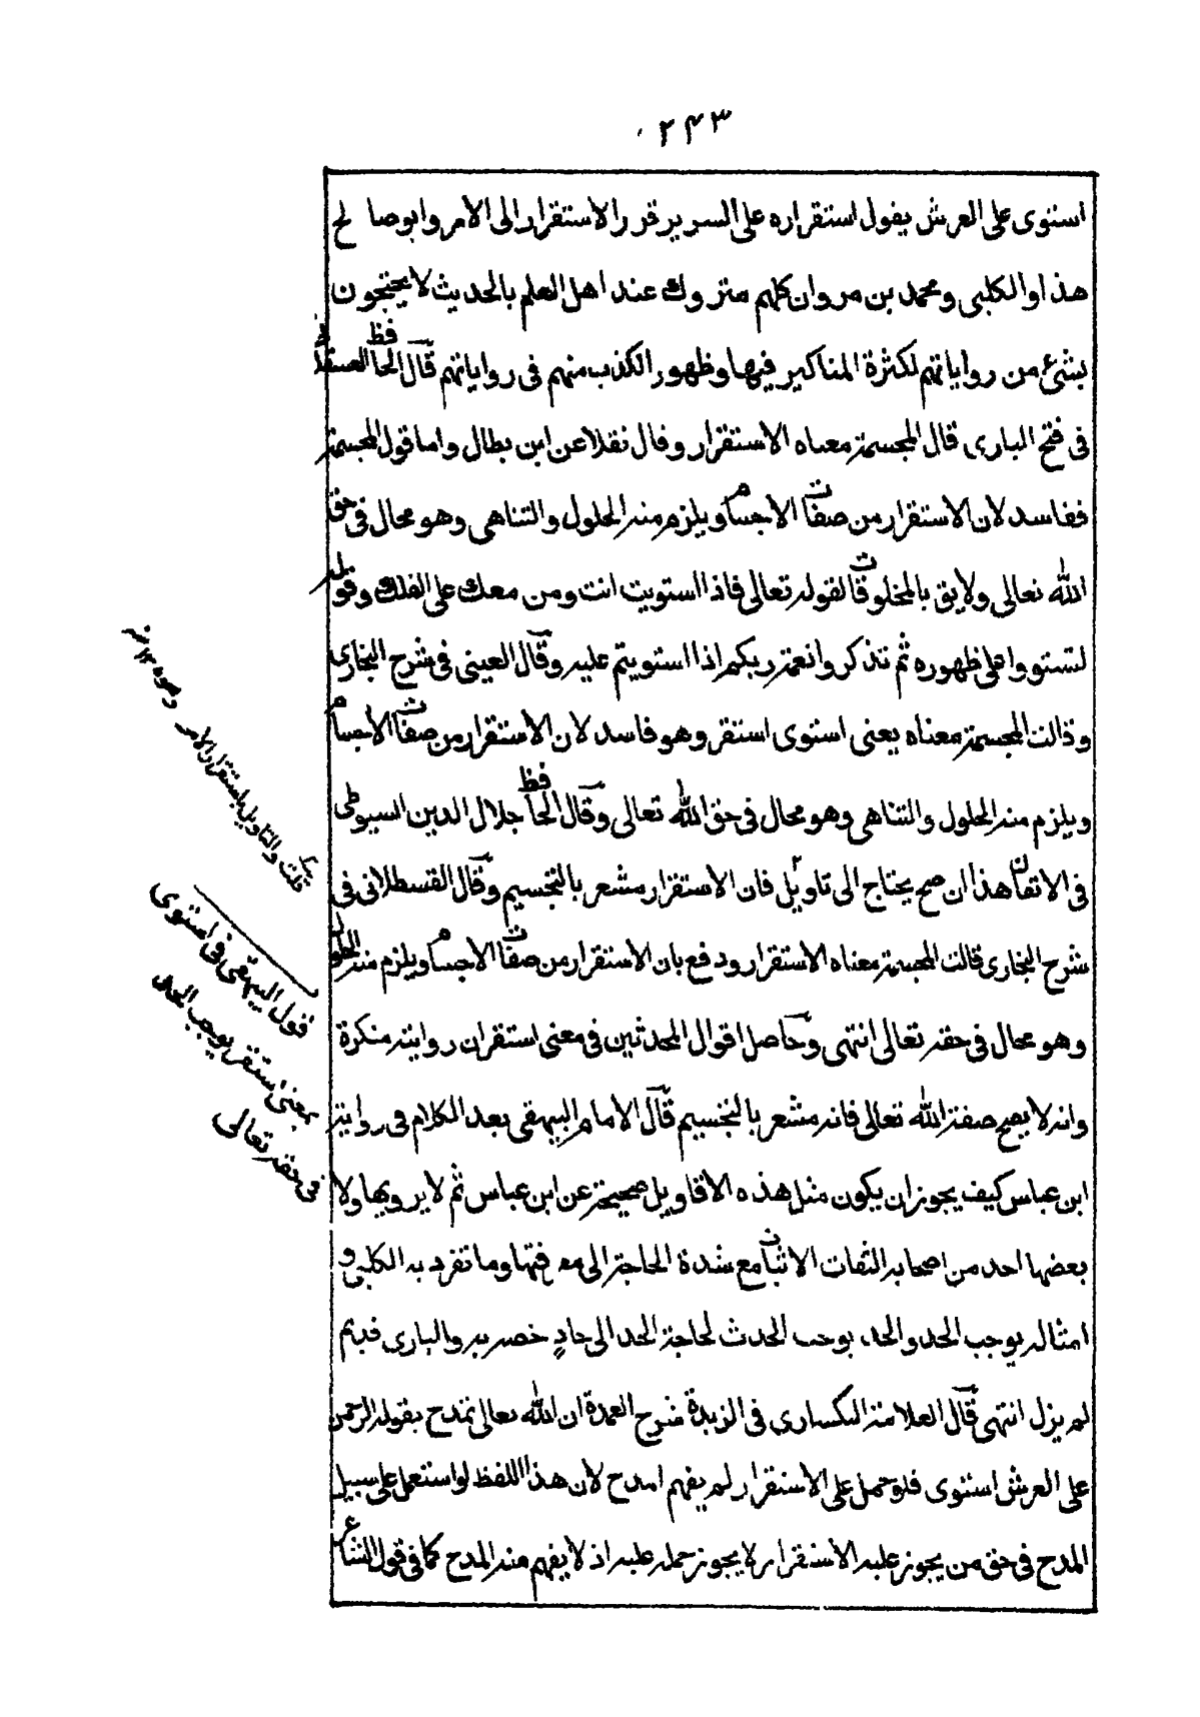 ٢٤٣
استوى على العرش يقول استقراره على السرير قرر الاستقرار الى الامر وابو صالح
هذا والكلبى ومحمد بن مروان كلهم متروك عند اهل العلم بالحديث لا يحتجون
بشئ من رواياتهم لكثرة المناكير فيها وظهور الكذب منهم فى رواياتهم قال الحافظ العسقلانى
فى فتح البارى قال المجسمة معناه الاستقرار وقال نقلا عن ابن بطال واما قول المجسمة
ففاسد لان الاستقرار من صفات الاجسام ويلزم منه الحلول والتناهى وهو محال فى حق
الله تعالى ولايق بالمخلوقات لقوله تعالى فاذا استويت انت ومن معك على الفلك وقوله
لتستووا على ظهوره ثم تذكروا نعمة ربكم اذا استويتم عليه وقال العينى فى شرح البخارى
وقالت المجسمة معناه يعنى استوى استقر وهو فاسد لان الاستقرار من صفات الاجسام
ويلزم منه الحلول والتناهى وهو محال فى حق الله تعالى وقال الحافظ جلال الدين السيوطى
فى الاتقان هذا ان صح يحتاج الى تاويل فان الاستقرار مشعر بالتجسيم وقال القسطلانى فى
شرح البخارى قالت المجسمة معناه الاستقرار ودفع بان الاستقرار من صفات الاجسام ويلزم منه الحلول
وهو محال فى حقه تعالى انتهى وحاصل اقوال المحدثين فى معنى استقر ان روايته منكرة
وانه لا يصح صفة الله تعالى فانه مشعر بالتجسيم قال الامام البيهقى بعد الكلام فى رواية
ابن عباس كيف يجوز ان يكون مثل هذه الاقاويل صحيحة عن ابن عباس ثم لا يرويها ولا
بعضها احد من اصحابه الثقات الاثبات مع شدة الحاجة الى معرفتها وما تفرد به الكلبى و
امثاله يوجب الحد والحد يوجب الحدث لحاجة الحد الى حادٍ خصه به والبارى قديم
لم يزل انتهى قال العلامة النكسارى فى الزبدة شرح العمدة ان الله تعالى تمدح بقوله الرحمن
على العرش استوى فلو حمل على الاستقرار لم يفهم امدح لان هذا اللفظ لو استعمل على سبيل
المدح فى حق من يجوز عليه الاستقرار لا يجوز حمله عليه اذ لا يفهم منه المدح كما فى قول الشاعر
قلت والتاويل باستقرار الامر وهوه ١٢ منه
قول البيهقى فى استوى
بمعنى استقر يوجب الحد
فى حقه تعالى